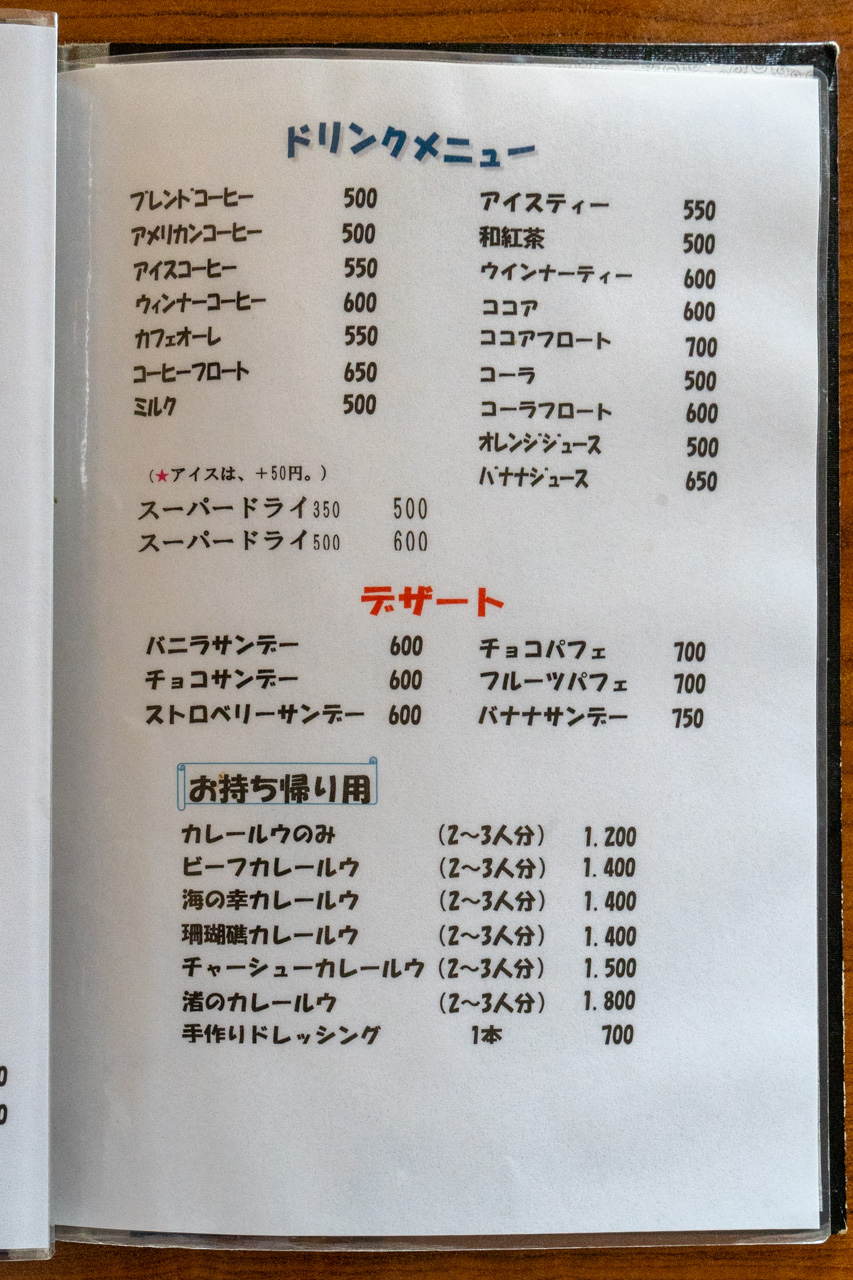 ドリンクメニュー
ブレンドコーヒー 500
アメリカンコーヒー 500
アイスコーヒー 550
ウィンナーコーヒー 600
カフェオーレ 550
コーヒーフロート 650
ミルク 500
(★アイスは、+50円。)
スーパードライ350 500
スーパードライ500 600
アイスティー 550
和紅茶 500
ウインナーティー 600
ココア 600
ココアフロート 700
コーラ 500
コーラフロート 600
オレンジジュース 500
バナナジュース 650
デザート
バニラサンデー 600
チョコサンデー 600
ストロベリーサンデー 600
チョコパフェ 700
フルーツパフェ 700
バナナサンデー 750
お持ち帰り用
カレールウのみ (2〜3人分) 1.200
ビーフカレールウ (2〜3人分) 1.400
海の幸カレールウ (2〜3人分) 1.400
珊瑚礁カレールウ (2〜3人分) 1.400
チャーシューカレールウ (2〜3人分) 1.500
渚のカレールウ (2〜3人分) 1.800
手作りドレッシング 1本 700
0
0